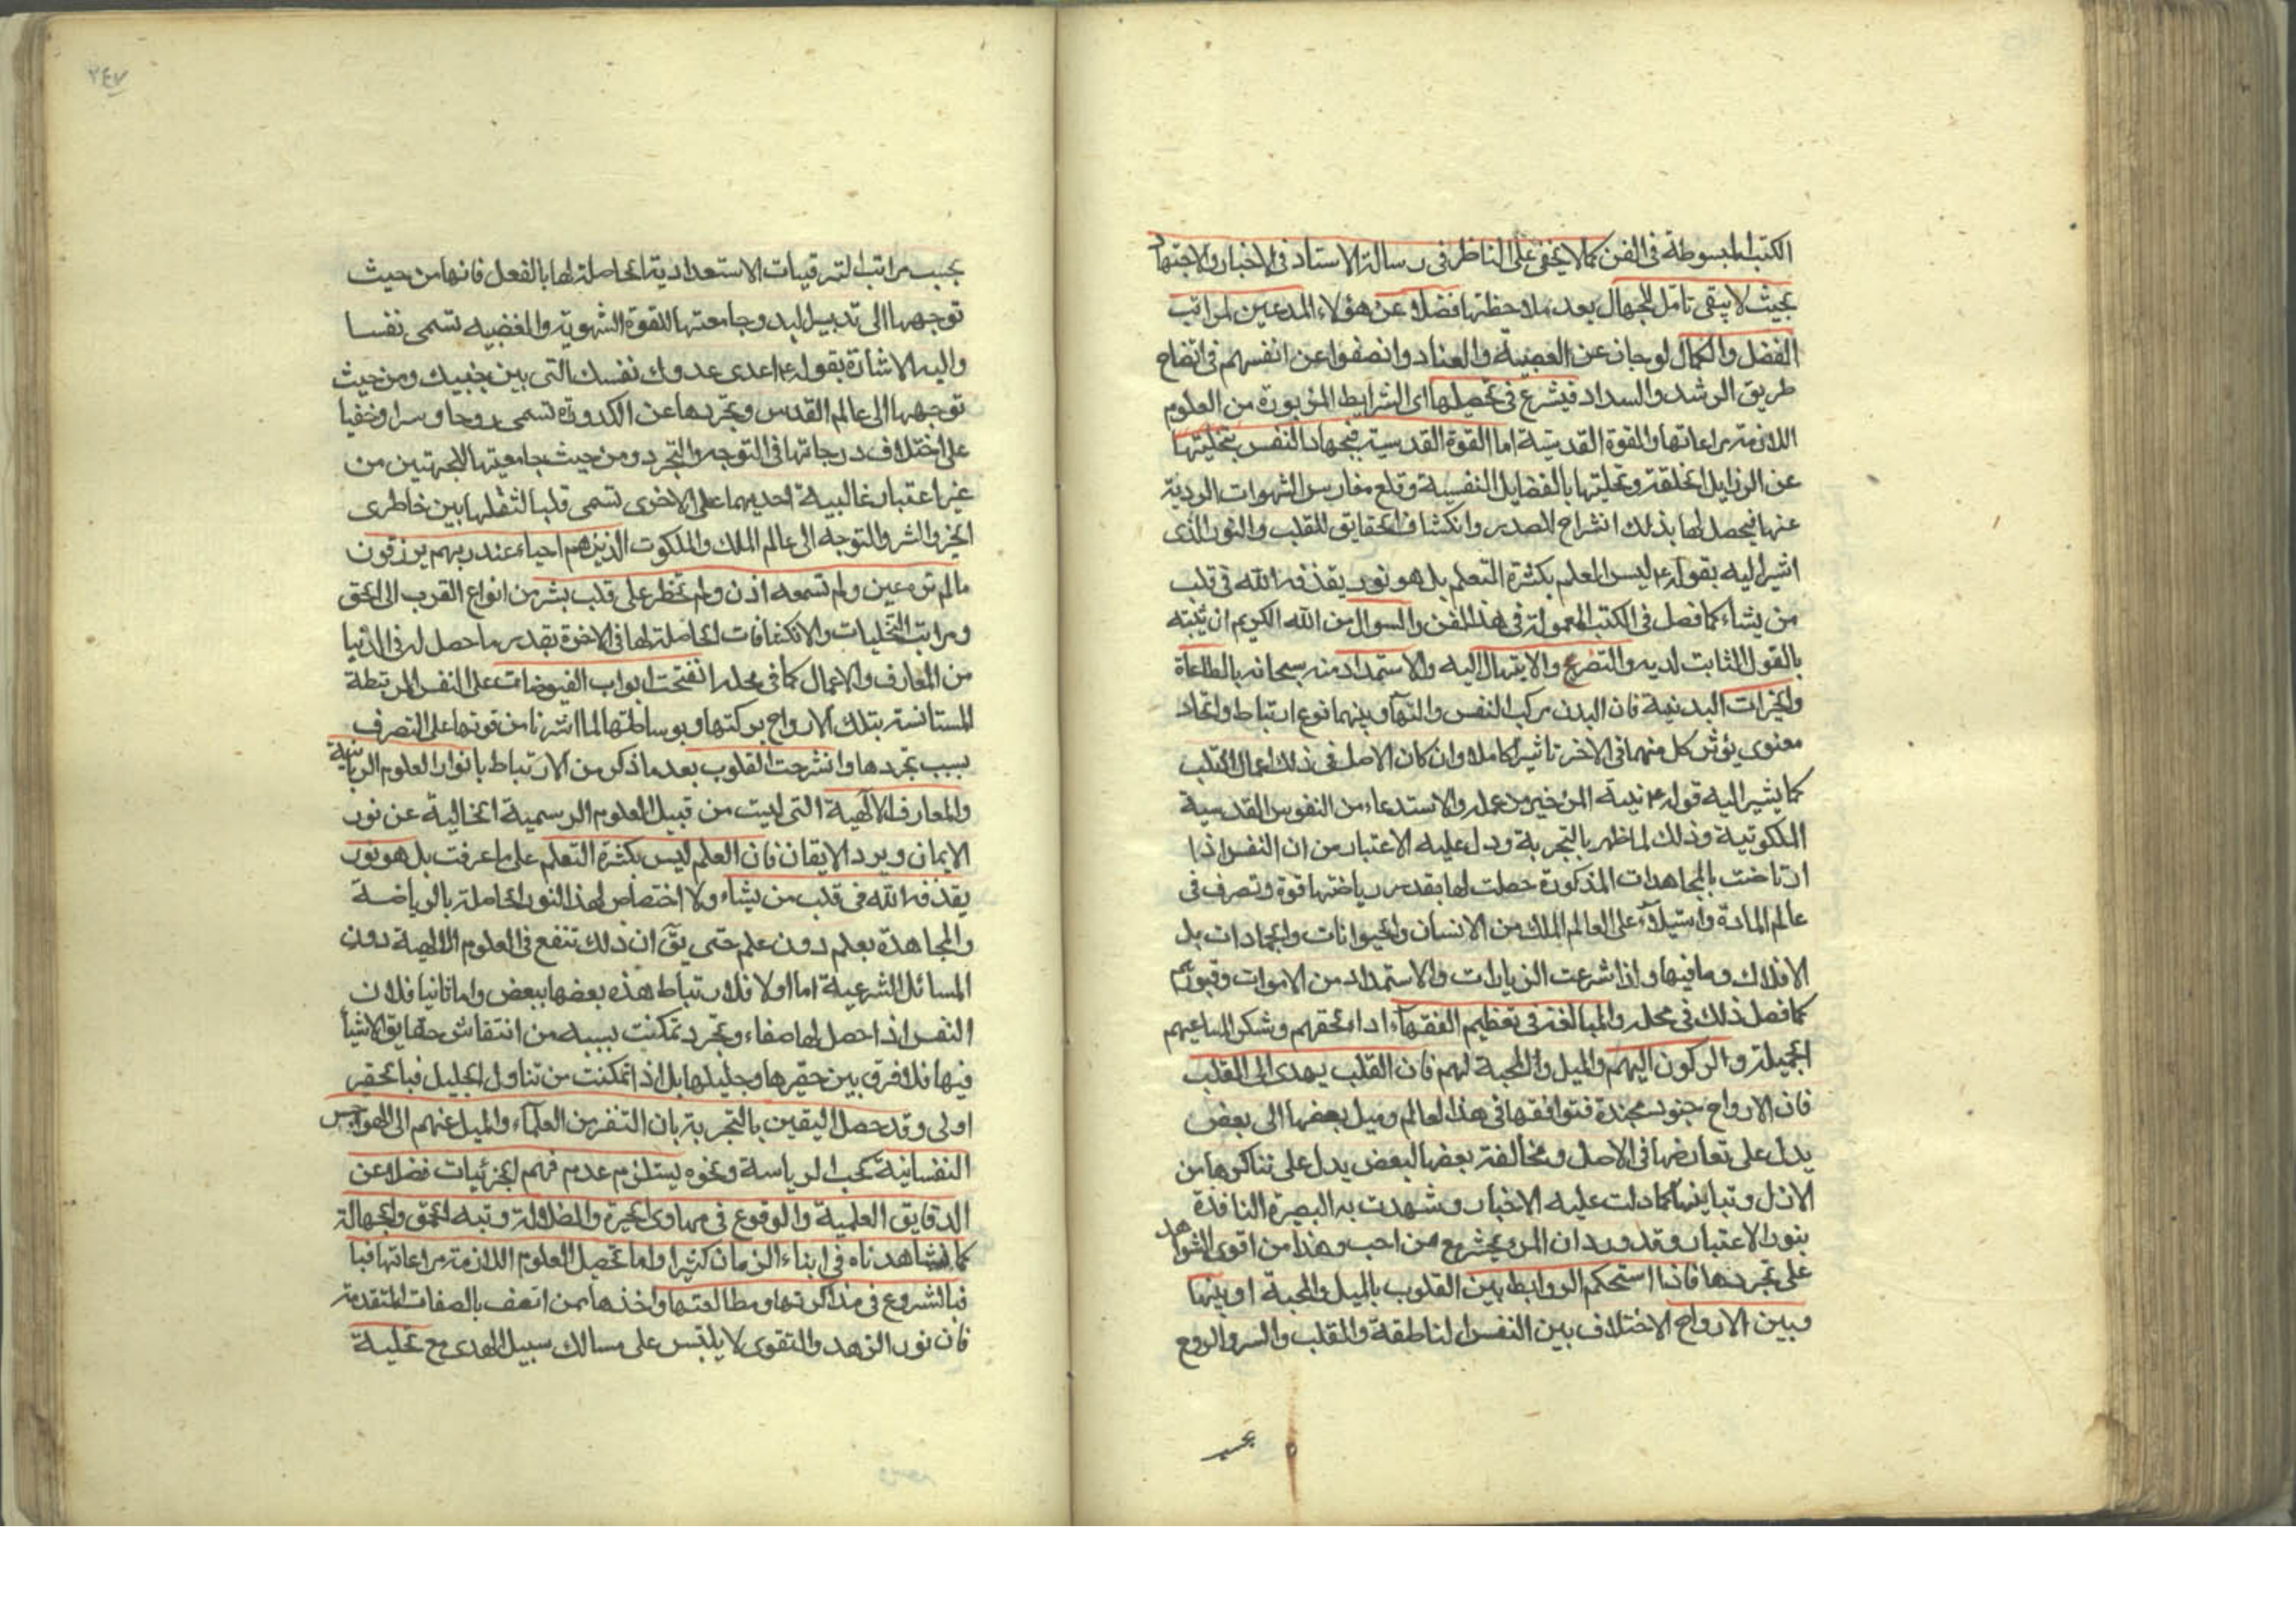 الكتب المبسوطة فى الفن كما لا يخفى على الناظر فى رسالة الاستاد فى الاخبار والاجتهاد
بحيث لا يبقى تامل للجهال بعد ملاحظتها فضلا عن هؤلاء المدعين لمراتب
الفضل والكمال لو جانوا عن العصبية والعناد وانصفوا عن انفسهم فى اتضاح
طريق الرشد والسداد فيشرع فى تحصيلها اى الشرايط المزبورة من العلوم
اللازمة مراعاتها والقوة القدسية اما القوة القدسية فبجهاد النفس بتخليتها
عن الرذايل الخلقة وتحليتها بالفضايل النفسية وقلع مغارس الشهوات الردية
عنها فيحصل لها بذلك انشراح للصدر وانكشاف الحقايق للقلب والنور الذى
اشير اليه بقوله ع ليس العلم بكثرة التعلم بل هو نور يقذفه الله فى قلب
من يشاء كما فصل فى الكتب المعمولة فى هذا الفن والسوال من الله الكريم ان يثبته
بالقول الثابت لديه والتضرع والابتهال اليه والاستمداد منه سبحانه بالطاعة
والخيرات البدنية فان البدن مركب النفس والتها وبينهما نوع ارتباط واتحاد
معنوى يؤثر كل منهما فى الاخر تاثيرا كاملا وان كان الاصل فى ذلك اعمال القلب
كما يشير اليه قوله ع نية المرء خير من عمله والاستدعاء من النفوس القدسية
الملكوتية وذلك لما ظهر بالتجربة ودل عليه الاعتبار من ان النفس اذا
ارتاضت بالمجاهدات المذكورة حصلت لها بقدر رياضتها قوة وتصرف فى
عالم المادة واستيلاء على العالم الملك من الانسان والحيوانات والجمادات بل
الافلاك وما فيها ولذا شرعت الزيارات والاستمداد من الاموات وقبورهم
كما فصل ذلك فى محله والمبالغة فى تعظيم الفقهاء اداء لحقهم وشكر المساعيهم
الجميلة والركون اليهم والميل والمحبة لهم فان القلب يهدى الى القلب
فان الارواح جنود مجندة فتوافقها فى هذا لعالم وميل بعضها الى بعض
يدل على تعارفها فى الاصل ومخالفة بعضها لبعض يدل على تناكرها من
الازل وتباينها كما دلت عليه الاخبار وشهدت به البصيرة النافذة
بنور الاعتبار وقد ورد ان المرء يحشر مع من احب وهذا من اقوى الشواهد
على تجردها فاذا استحكم الروابط بين القلوب بالميل والمحبة او بينها
وبين الارواح لاختلاف بين النفس الناطقة والقلب والسر والروح
بحسب
٢٤٧
بحسب مراتب الترقيات الاستعدادية الحاصلة لها بالفعل فانها من حيث
توجهها الى تدبير البدن وجامعتها للقوة الشهوية والغضبيه تسمى نفسا
واليه الاشارة بقوله ع اعدى عدوك نفسك التى بين جنبيك ومن حيث
توجهها الى عالم القدس وتجردها عن الكدورة تسمى روحا وسرا وخفيا
على اختلاف درجاتها فى التوجه والتجرد ومن حيث جامعيتها للجهتين من
غير اعتبار غالبية احديهما على الاخرى تسمى قلبا لتقلبها بين خاطرى
الخير والشر والتوجه الى عالم الملك والملكوت الذين هم احياء عند ربهم يرزقون
ما لم تره عين ولم تسمعه اذن ولم تخطر على قلب بشر من انواع القرب الى الحق
ومراتب التجليات والانكشافات الحاصلة لها فى الاخرة بقدر ما حصل له فى الدنيا
من المعارف والاعمال كما فى محله انفتحت ابواب الفيوضات على النفس المرتبطة
المستانسة بتلك الارواح ببركتها وبوساطتها لما اشرنا من قوتها على التصرف
بسبب تجردها وانشرحت القلوب بعد ما ذكر من الارتباط بانوار العلوم الربانية
والمعارف الالهية التى ليست من قبيل العلوم الرسمية الخالية عن نور
الايمان وبرد الايقان فان العلم ليس بكثرة التعلم على ما عرفت بل هو نور
يقذفه الله فى قلب من يشاء ولا اختصاص لهذا النور الحاصلة بالرياضة
والمجاهدة بعلم دون علم حتى يق ان ذلك تنفع فى العلوم الالهية دون
المسائل الشرعية اما اولا فلارتباط هذه بعضها ببعض واما ثانيا فلان
النفس اذا حصل لها صفاء وتجرد تمكنت بسببه من انتقاش حقايق الاشيأ
فيها فلا فرق بين حقيرها وجليلها بل اذا تمكنت من تناول الجليل فبالحقير
اولى وقد حصل اليقين بالتجربة بان التنفر من العلماء والميل عنهم الى الهواجس
النفسانية كحب الرياسة ونحوه يستلزم عدم فهم الجزئيات فضلا عن
الدقايق العلمية والوقوع فى مهاوى الحيرة والضلالة وتيه الحمق والجهالة
كما شاهدناه فى ابناء الزمان كثيرا واما تحصيل العلوم اللازمة مراعاتها فبا
فبالشروع فى مذاكرتها ومطالعتها واخذها ممن اتصف بالصفات المتقدمة
فان نور الزهد والتقوى لا يلتبس على مسالك سبيل الهدى مع تخلية